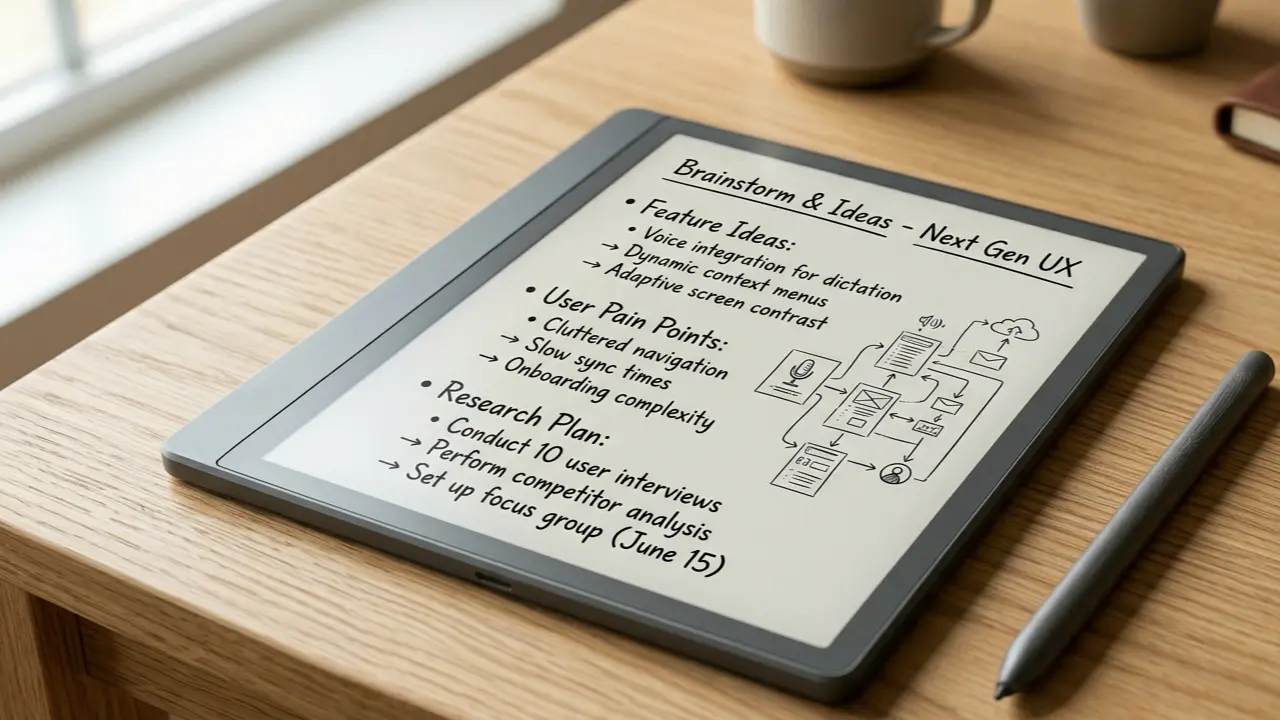 Brainstorm & Ideas - Next Gen UX
• Feature Ideas:
• Voice integration for dictation
→ Dynamic context menus
→ Adaptive screen contrast
• User Pain Points:
• Cluttered navigation
→ Slow sync times
→ Onboarding complexity
• Research Plan:
• Conduct 10 user interviews
→ Perform competitor analysis
→ Set up focus group (June 15)